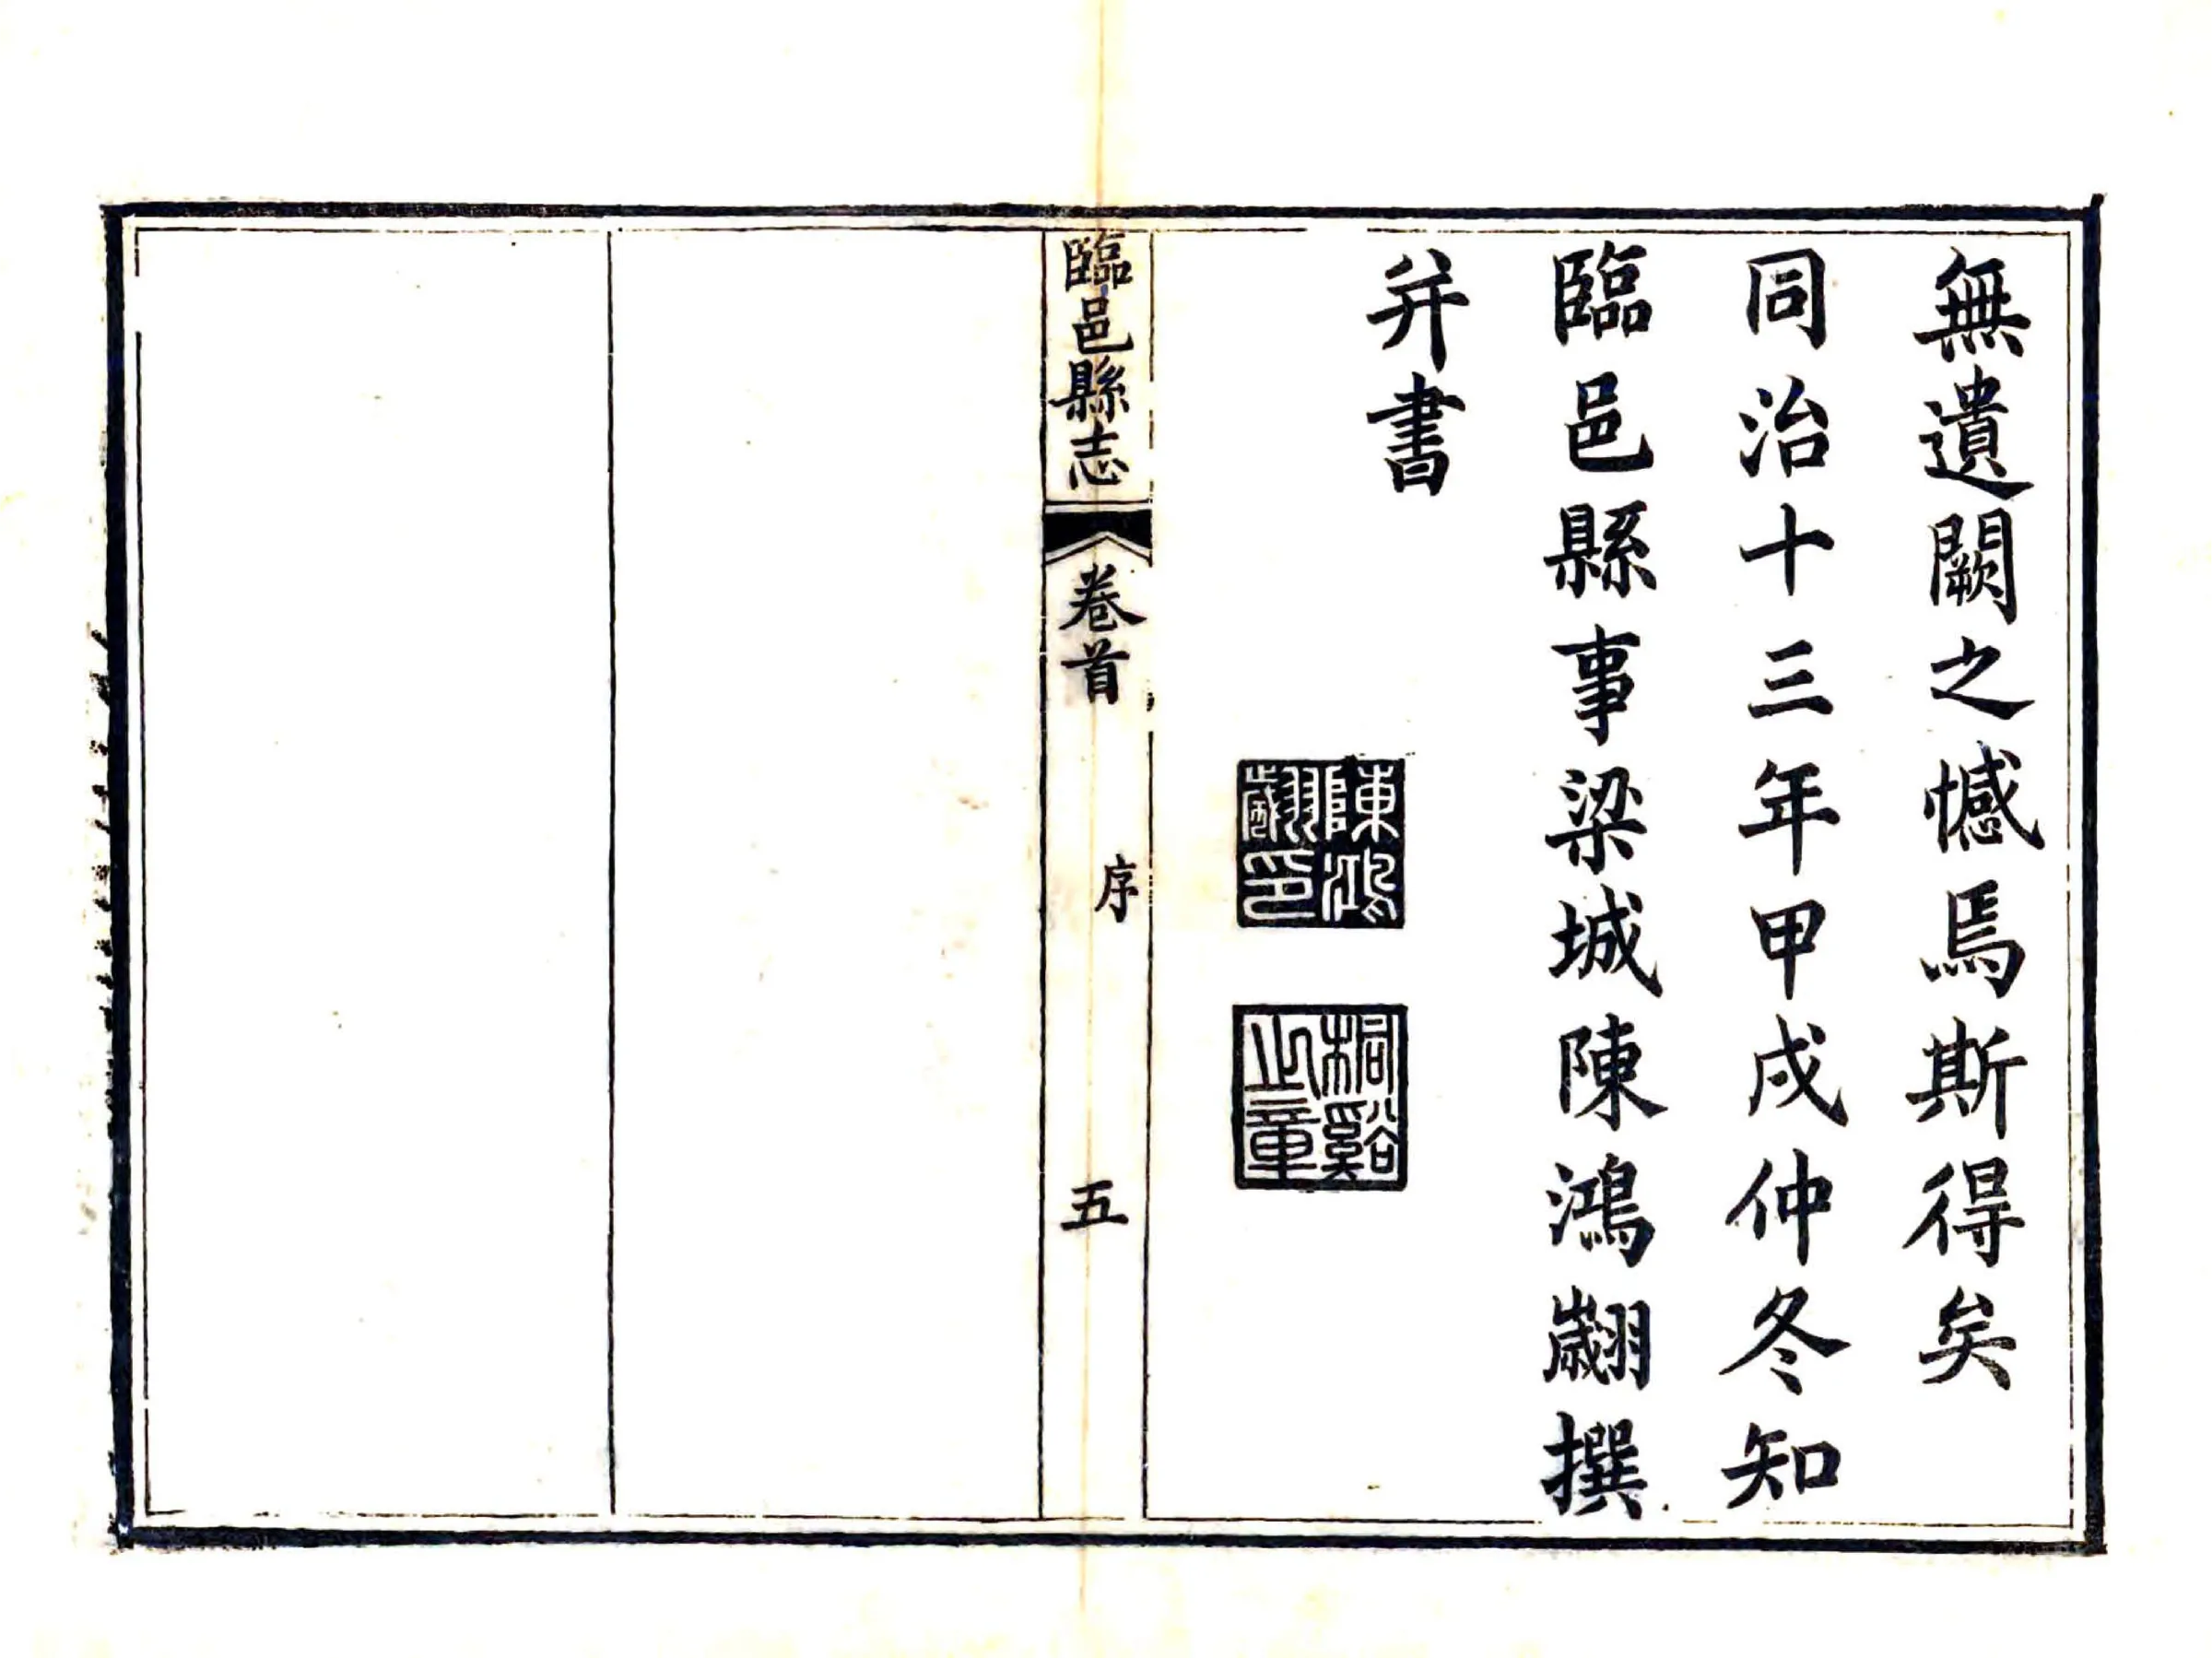 無遺闕之憾焉斯得矣
同治十三年甲戌仲冬知
臨邑縣事梁城陳鴻翽撰
并書
陳鴻翽印
桐谿止童
臨邑縣志
卷首
序
五